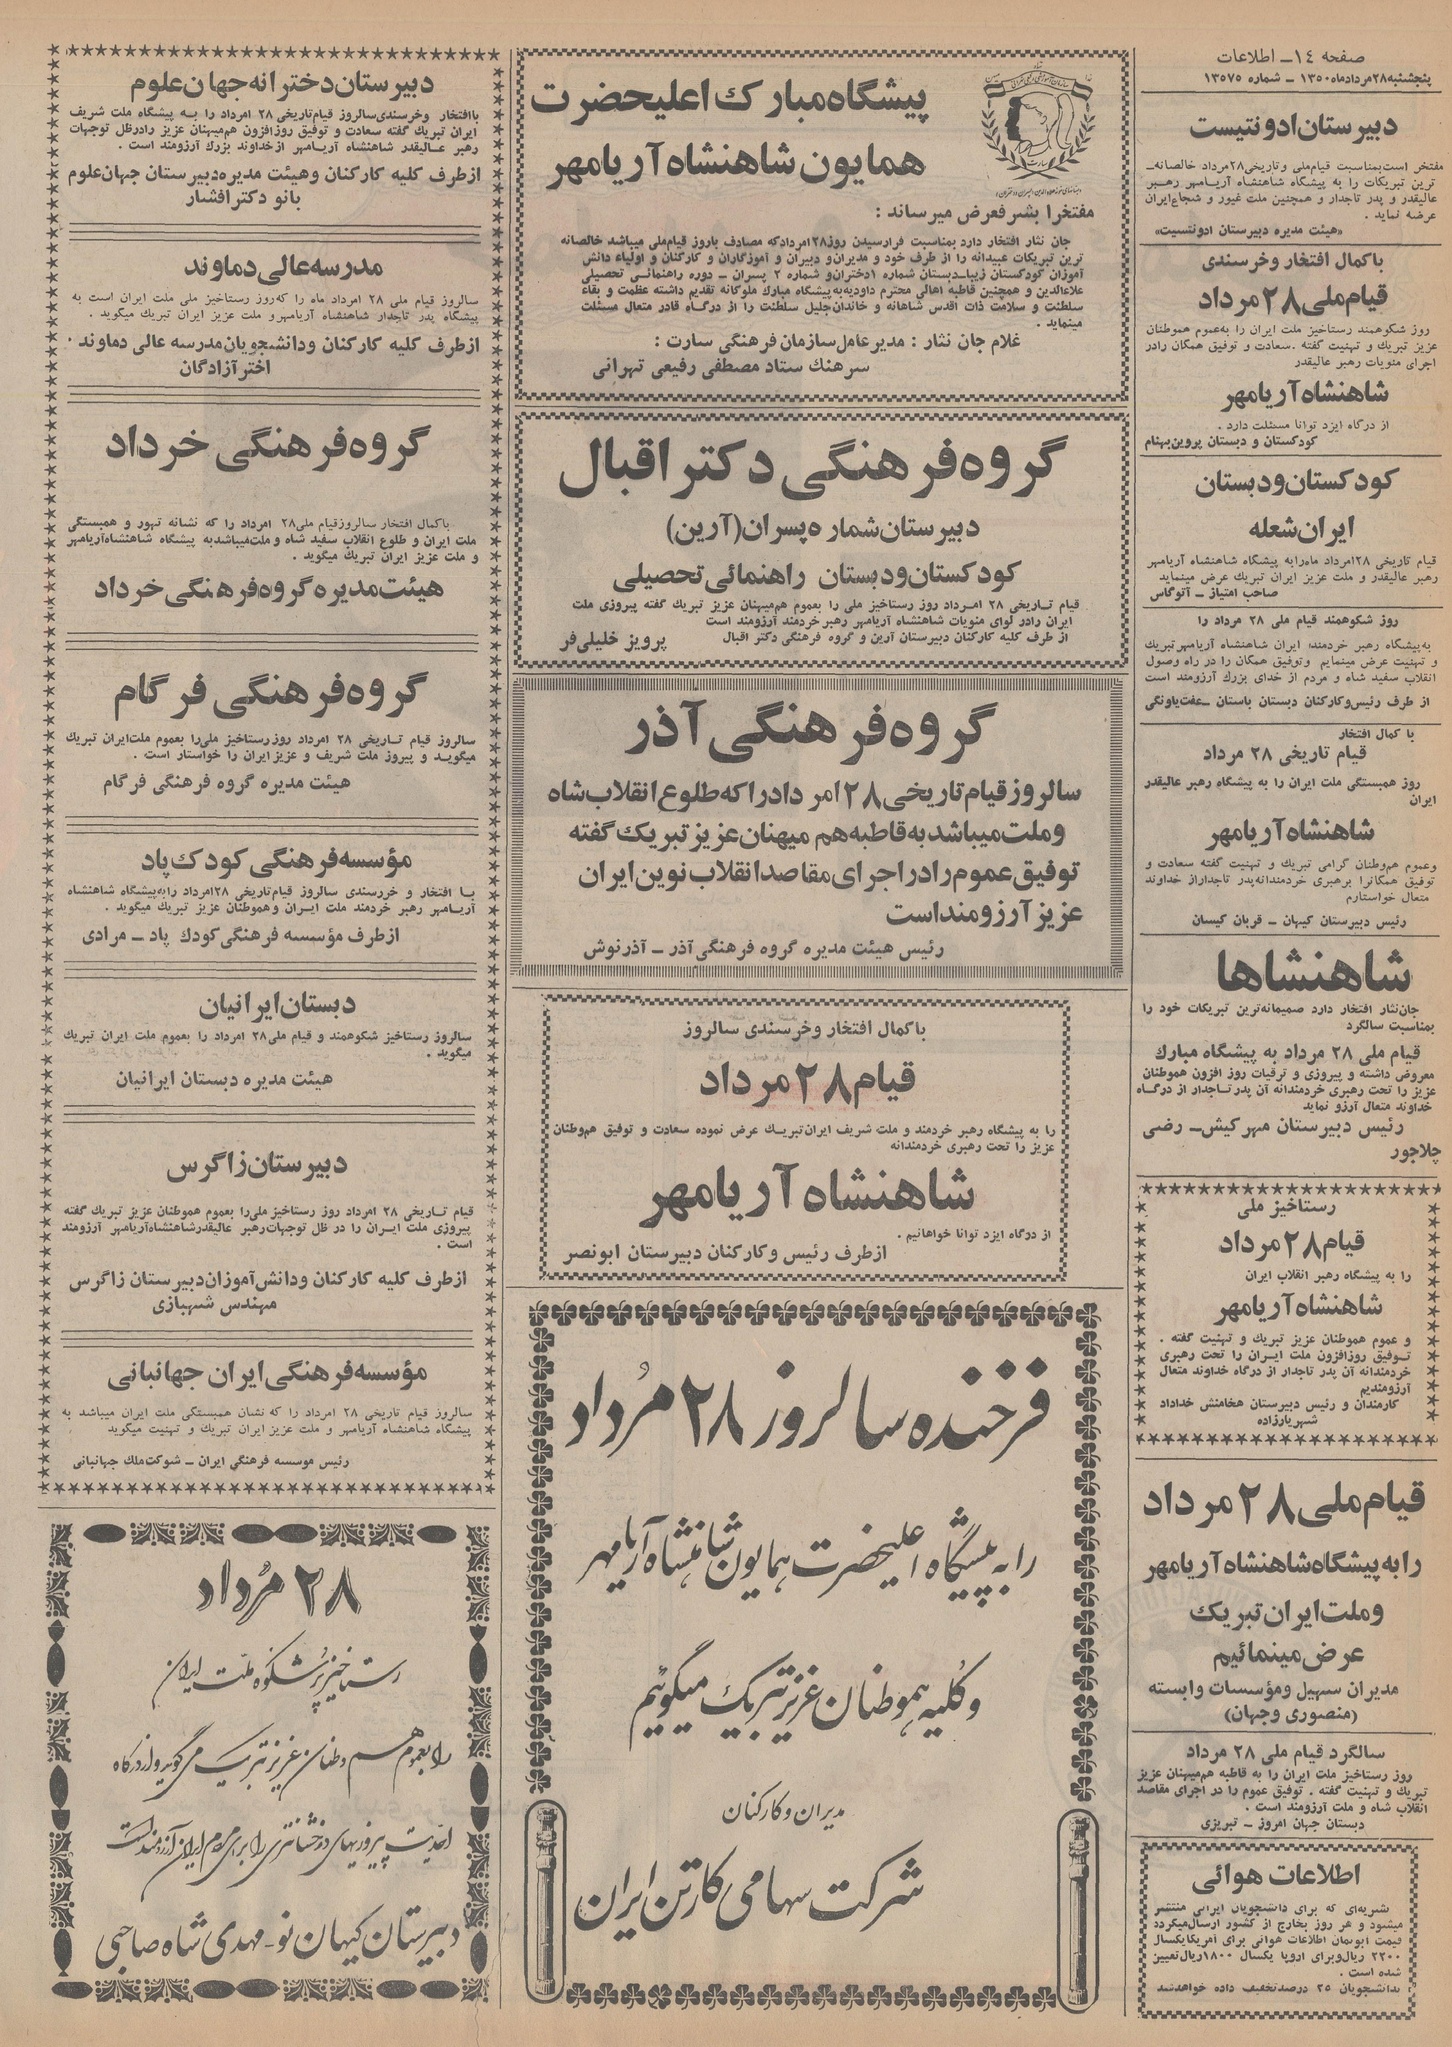 صفحه ۱۴ــ اطلاعات
پنجشنبه ۲۸ مرداد ماه ۱۳۵۰ ــ شماره ۱۳۵۷۵
دبیرستان ادونتیست
مفتخر است بمناسبت قیام ملی و تاریخی ۲۸ مرداد خالصانه‌ـ
ترین تبریکات را به پیشگاه شاهنشاه آریامهر رهبر
عالیقدر و پدر تاجدار و همچنین ملت غیور و شجاع ایران
عرضه نماید .
«هیئت مدیره دبیرستان ادونتسیت»
باکمال افتخار وخرسندی
قیام ملی ۲۸ مرداد
روز شکوهمند رستاخیز ملت ایران را بعموم هموطنان
عزیز تبریك و تهنیت گفته . سعادت و توفیق همگان رادر
اجرای منویات رهبر عالیقدر
شاهنشاه آریامهر
از درگاه ایزد توانا مسئلت دارد .
کودکستان و دبستان پروین بهنام
کودکستان ودبستان
ایران شعله
قیام تاریخی ۲۸امرداد ماه رابه پیشگاه شاهنشاه آریامهر
رهبر عالیقدر و ملت عزیز ایران تبریك عرض مینماید
صاحب امتیاز ــ آتوگاس
روز شکوهمند قیام ملی ۲۸ مرداد را
به پیشگاه رهبر خردمند ایران شاهنشاه آریامهر تبریك
و تهنیت عرض مینمایم وتوفیق همگان را در راه وصول
انقلاب سفید شاه و مردم از خدای بزرك آرزومند است
از طرف رئیس وکارکنان دبستان باستان ــ عفت یاونگی
با کمال افتخار
قیام تاریخی ۲۸ مرداد
روز همبستگی ملت ایران را به پیشگاه رهبر عالیقدر
ایران
شاهنشاه آریامهر
وعموم هم‌وطنان گرامی تبریك و تهنیت گفته سعادت و
توفیق همگانرا برهبری خردمندانه پدر تاجدار از خداوند
متعال خواستارم
رئیس دبیرستان کیهان ــ قربان کیسان
شاهنشاها
جان‌نثار افتخار دارد صمیمانه‌ترین تبریکات خود را
بمناسبت سالگرد
قیام ملی ۲۸ مرداد به پیشگاه مبارك
معروض داشته و پیروزی و ترقیات روز افزون هموطنان
عزیز را تحت رهبری خردمندانه آن پدر تاجدار از درگاه
خداوند متعال آرزو نماید
رئیس دبیرستان مهرکیش ــ رضی
چلاجور
رستاخیز ملی
قیام ۲۸ مرداد
را به پیشگاه رهبر انقلاب ایران
شاهنشاه آریامهر
و عموم هموطنان عزیز تبریك و تهنیت گفته .
توفیق روزافزون ملت ایران را تحت رهبری
خردمندانه آن پدر تاجدار از درگاه خداوند متعال
آرزومندیم
کارمندان و رئیس دبیرستان هخامنش خداداد
شهریارزاده
قیام ملی ۲۸ مرداد
را به پیشگاه شاهنشاه آریامهر
وملت ایران تبریک
عرض مینمائیم
مدیران سهیل ومؤسسات وابسته
(منصوری وجهان)
سالگرد قیام ملی ۲۸ مرداد
روز رستاخیز ملت ایران را به قاطبه هم‌میهنان عزیز
تبریك و تهنیت گفته . توفیق عموم را در اجرای مقاصد
انقلاب شاه و ملت آرزومند است .
دبستان جهان امروز ــ تبریزی
اطلاعات هوائی
نشریه‌ای که برای دانشجویان ایرانی منتشر
میشود و هر روز بخارج از کشور ارسال میگردد
قیمت آبونمان اطلاعات هوائی برای آمریکا یکسال
۲۲۰۰ ریال وبرای اروپا یکسال ۱۸۰۰ ریال تعیین
شده است .
بدانشجویان ۲۵ درصد تخفیف داده خواهد شد
پیشگاه مبارک اعلیحضرت
همایون شاهنشاه آریامهر
مفتخرا بشرفعرض میرساند :
جان نثار افتخار دارد بمناسبت فرارسیدن روز ۲۸ امرداد که مصادف باروز قیام ملی میباشد خالصانه
ترین تبریکات عبیدانه را از طرف خود و مدیران و دبیران و آموزگاران و کارکنان و اولیاء دانش
آموزان کودکستان زیبا ــ دبستان شماره ۱ دختران و شماره ۲ پسران ــ دوره راهنمائی تحصیلی
علاءالدین و همچنین قاطبه اهالی محترم داودیه به پیشگاه مبارك ملوکانه تقدیم داشته عظمت و بقاء
سلطنت و سلامت ذات اقدس شاهانه و خاندان جلیل سلطنت را از درگاه قادر متعال مسئلت
مینماید .
غلام جان نثار : مدیرعامل سازمان فرهنگی سارت :
سرهنك ستاد مصطفی رفیعی تهرانی
گروه فرهنگی دکتر اقبال
دبیرستان شماره ۵ پسران (آرین)
کودکستان ودبستان راهنمائی تحصیلی
قیام تاریخی ۲۸ امرداد روز رستاخیز ملی را بعموم هم‌میهنان عزیز تبریك گفته پیروزی ملت
ایران رادر لوای منویات شاهنشاه آریامهر رهبر خردمند آرزومند است
از طرف کلیه کارکنان دبیرستان آرین و گروه فرهنگی دکتر اقبال
پرویز خلیلی فر
گروه فرهنگی آذر
سالروز قیام تاریخی ۲۸ امرداد را که طلوع انقلاب شاه
وملت میباشد به قاطبه هم میهنان عزیز تبریک گفته
توفیق عموم را در اجرای مقاصد انقلاب نوین ایران
عزیز آرزومند است
رئیس هیئت مدیره گروه فرهنگی آذر ــ آذرنوش
باکمال افتخار وخرسندی سالروز
قیام ۲۸ مرداد
را به پیشگاه رهبر خردمند و ملت شریف ایران تبریك عرض نموده سعادت و توفیق هم‌وطنان
عزیز را تحت رهبری خردمندانه
شاهنشاه آریامهر
از درگاه ایزد توانا خواهانیم .
ازطرف رئیس وکارکنان دبیرستان ابونصر
فرخنده سالروز ۲۸ مرداد
را به پیشگاه اعلیحضرت همایون شاهنشاه آریامهر
و کلیه هموطنان عزیز تبریک میگوئیم
مدیران و کارکنان
شرکت سهامی کارتن ایران
دبیرستان دخترانه جهان علوم
باافتخار وخرسندی سالروز قیام تاریخی ۲۸ امرداد را به پیشگاه ملت شریف
ایران تبریك گفته سعادت و توفیق روزافزون هم‌میهنان عزیز رادرظل توجهات
رهبر عالیقدر شاهنشاه آریامهر ازخداوند بزرك آرزومند است .
ازطرف کلیه کارکنان وهیئت مدیره دبیرستان جهان علوم
بانو دکتر افشار
مدرسه عالی دماوند
سالروز قیام ملی ۲۸ امرداد ماه را که روز رستاخیز ملی ملت ایران است به
پیشگاه پدر تاجدار شاهنشاه آریامهر و ملت عزیز ایران تبریك میگوید .
ازطرف کلیه کارکنان ودانشجویان مدرسه عالی دماوند .
اختر آزادگان
گروه فرهنگی خرداد
باکمال افتخار سالروز قیام ملی ۲۸ امرداد را که نشانه تهور و همبستگی
ملت ایران و طلوع انقلاب سفید شاه و ملت میباشد به پیشگاه شاهنشاه آریامهر
و ملت عزیز ایران تبریك میگوید .
هیئت مدیره گروه فرهنگی خرداد
گروه فرهنگی فرگام
سالروز قیام تاریخی ۲۸ امرداد روز رستاخیز ملی را بعموم ملت ایران تبریك
میگوید و پیروز ملت شریف و عزیز ایران را خواستار است .
هیئت مدیره گروه فرهنگی فرگام
مؤسسه فرهنگی کودک پاد
با افتخار و خررسندی سالروز قیام تاریخی ۲۸امرداد رابه پیشگاه شاهنشاه
آریامهر رهبر خردمند ملت ایران وهموطنان عزیز تبریك میگوید .
ازطرف مؤسسه فرهنگی کودك پاد ــ مرادی
دبستان ایرانیان
سالروز رستاخیز شکوهمند و قیام ملی ۲۸ امرداد را بعموم ملت ایران تبریك
میگوید .
هیئت مدیره دبستان ایرانیان
دبیرستان زاگرس
قیام تاریخی ۲۸ امرداد روز رستاخیز ملی را بعموم هموطنان عزیز تبریك گفته
پیروزی ملت ایران را در ظل توجهات رهبر عالیقدر شاهنشاه آریامهر آرزومند
است .
ازطرف کلیه کارکنان ودانش آموزان دبیرستان زاگرس
مهندس شهبازی
مؤسسه فرهنگی ایران جهانبانی
سالروز قیام تاریخی ۲۸ امرداد را که نشان همبستگی ملت ایران میباشد به
پیشگاه شاهنشاه آریامهر و ملت عزیز ایران تبریك و تهنیت میگوید
رئیس موسسه فرهنگی ایران ــ شوکت ملك جهانبانی
۲۸ مرداد
رستاخیز پرشکوه ملت ایران
را بعموم هم وطنان عزیز تبریک می گوید و از درگاه
احدیت پیروزیهای درخشانتری را برای مردم ایران آرزومند است
دبیرستان کیهان نو ـ مهدی شاه صاحبی